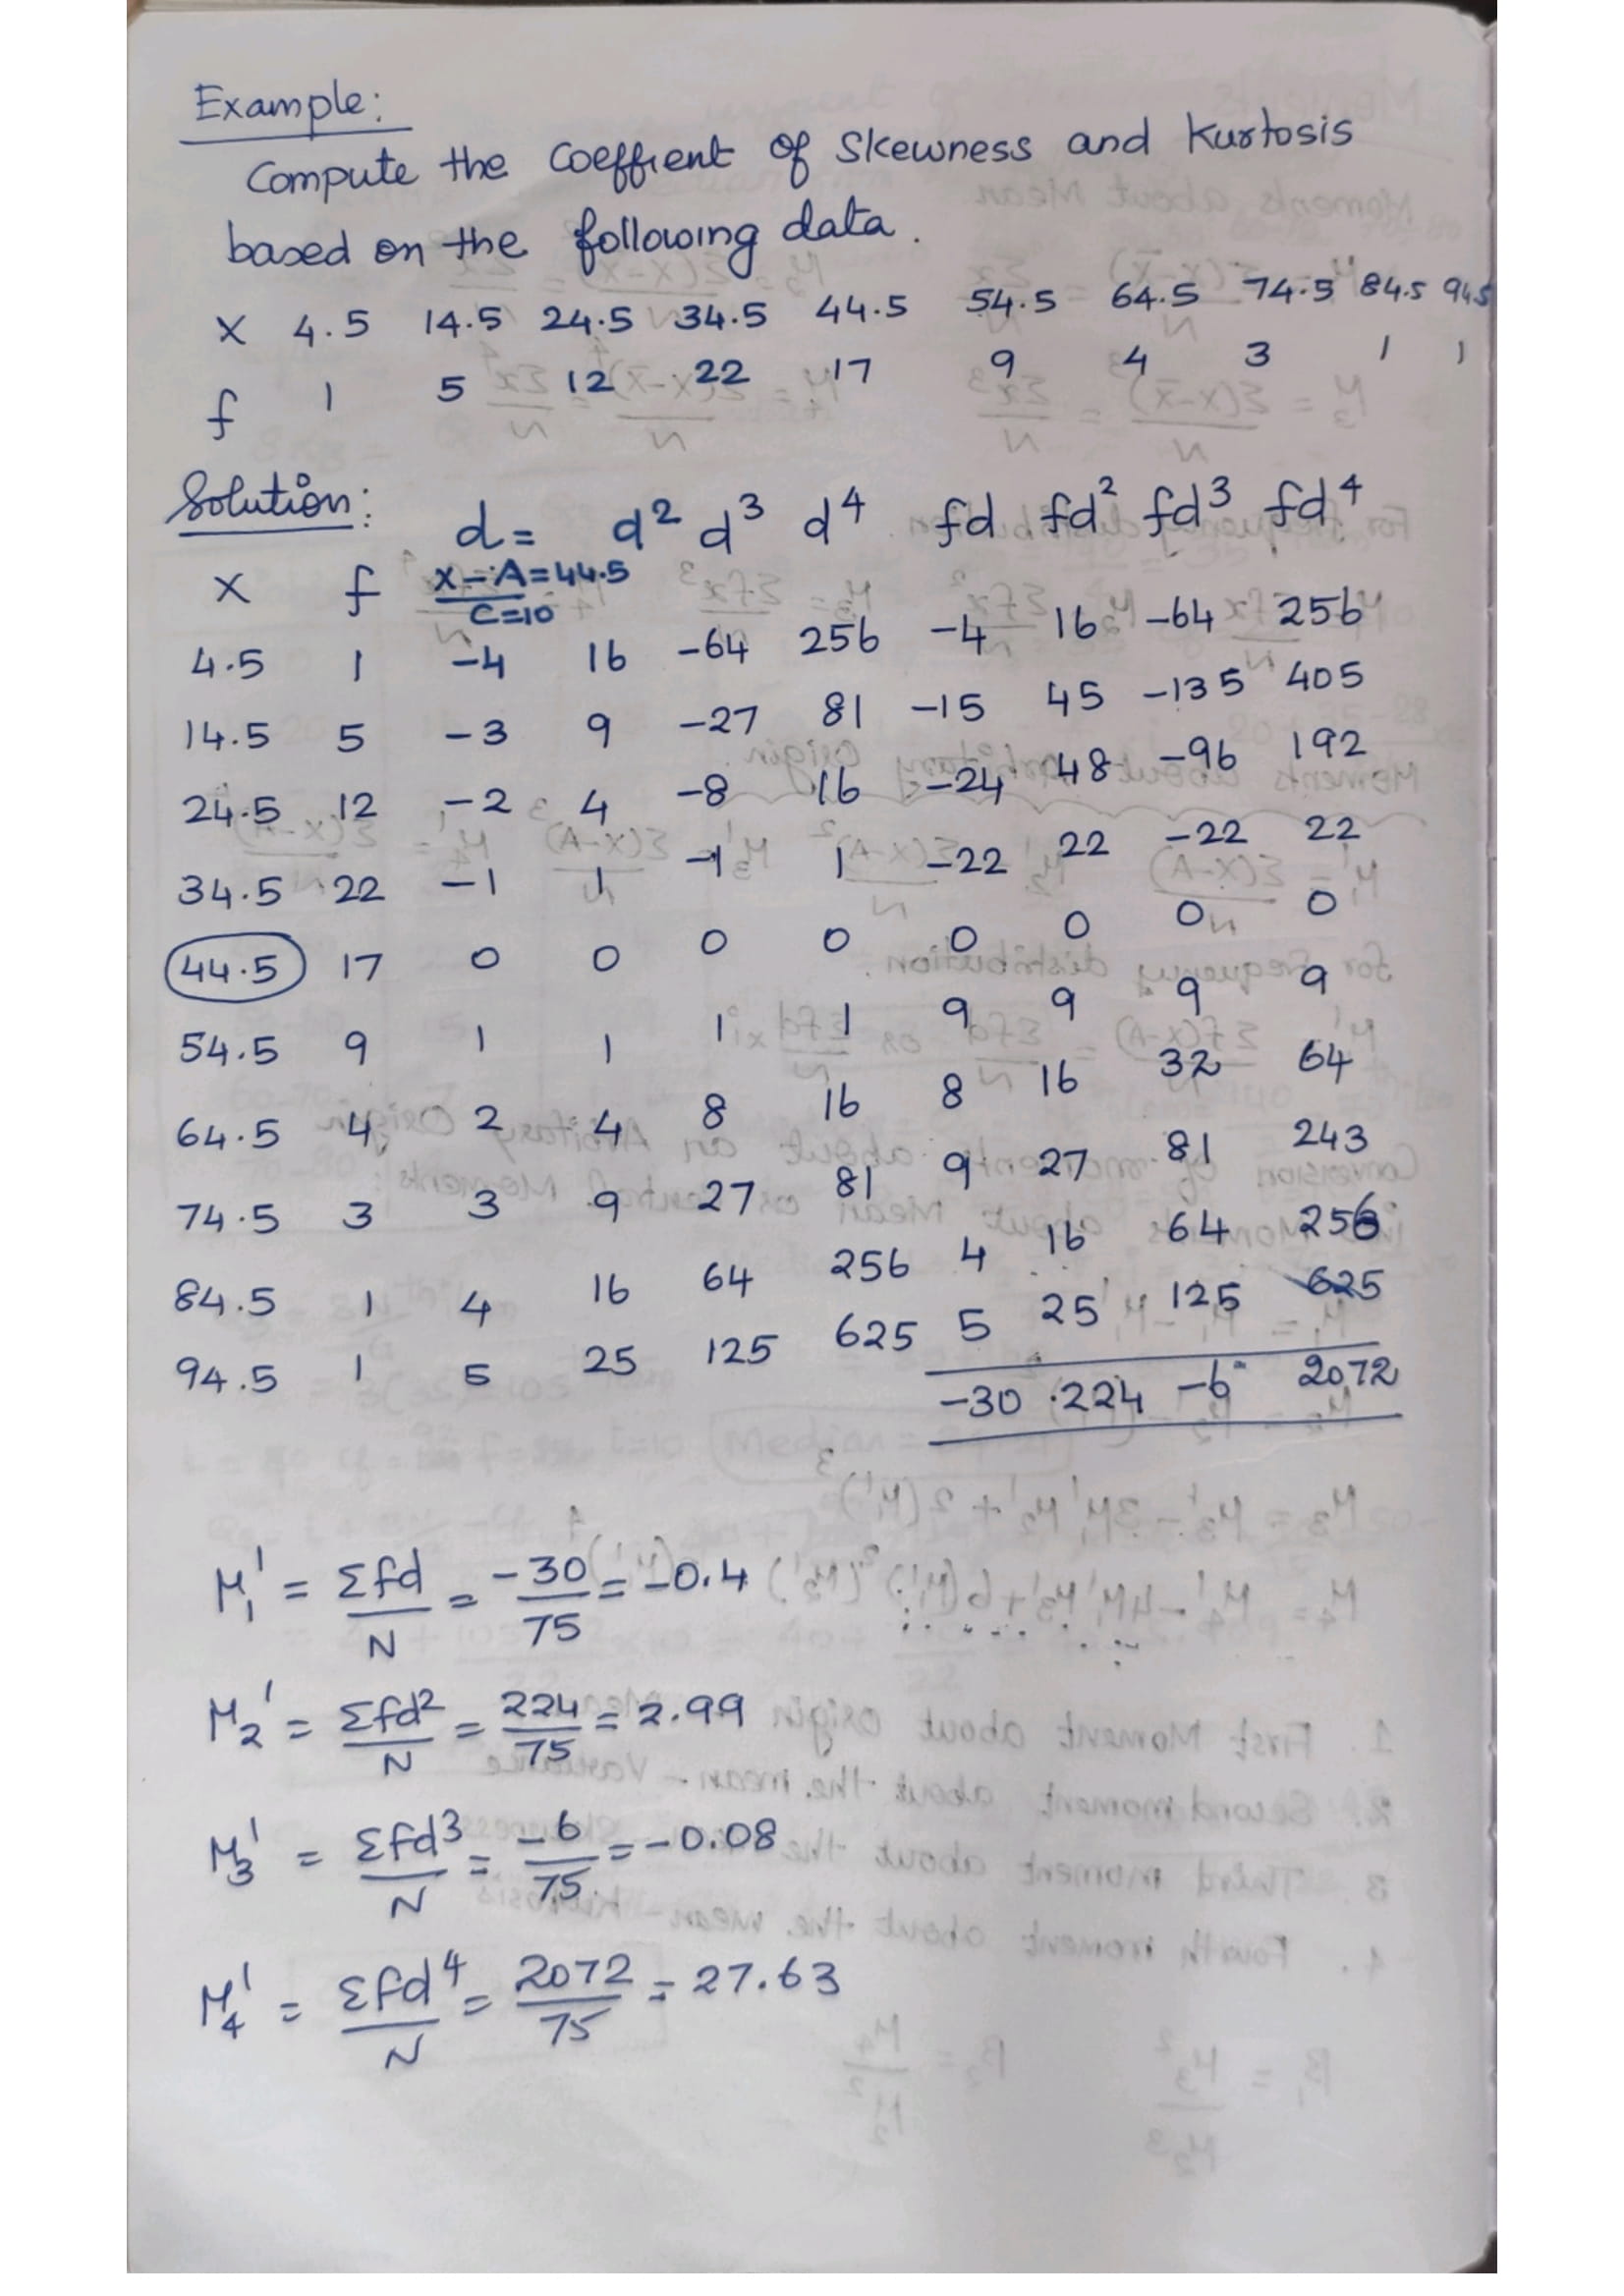 Example:
Compute the Coeffient of Skewness and Kurtosis
based on the following data.
X 4.5 14.5 24.5 34.5 44.5 54.5 64.5 74.5 84.5 94.5
f 1 5 12 22 17 9 4 3 1 1
Solution:
X f d = X-A=44.5 / C=10 d² d³ d⁴ fd fd² fd³ fd⁴
4.5 1 -4 16 -64 256 -4 16 -64 256
14.5 5 -3 9 -27 81 -15 45 -135 405
24.5 12 -2 4 -8 16 -24 48 -96 192
34.5 22 -1 1 -1 1 -22 22 -22 22
44.5 17 0 0 0 0 0 0 0 0
54.5 9 1 1 1 1 9 9 9 9
64.5 4 2 4 8 16 8 16 32 64
74.5 3 3 9 27 81 9 27 81 243
84.5 1 4 16 64 256 4 16 64 256
94.5 1 5 25 125 625 5 25 125 625
-30 224 -6 2072
μ₁' = Σfd / N = -30 / 75 = -0.4
μ₂' = Σfd² / N = 224 / 75 = 2.99
μ₃' = Σfd³ / N = -6 / 75 = -0.08
μ₄' = Σfd⁴ / N = 2072 / 75 = 27.63